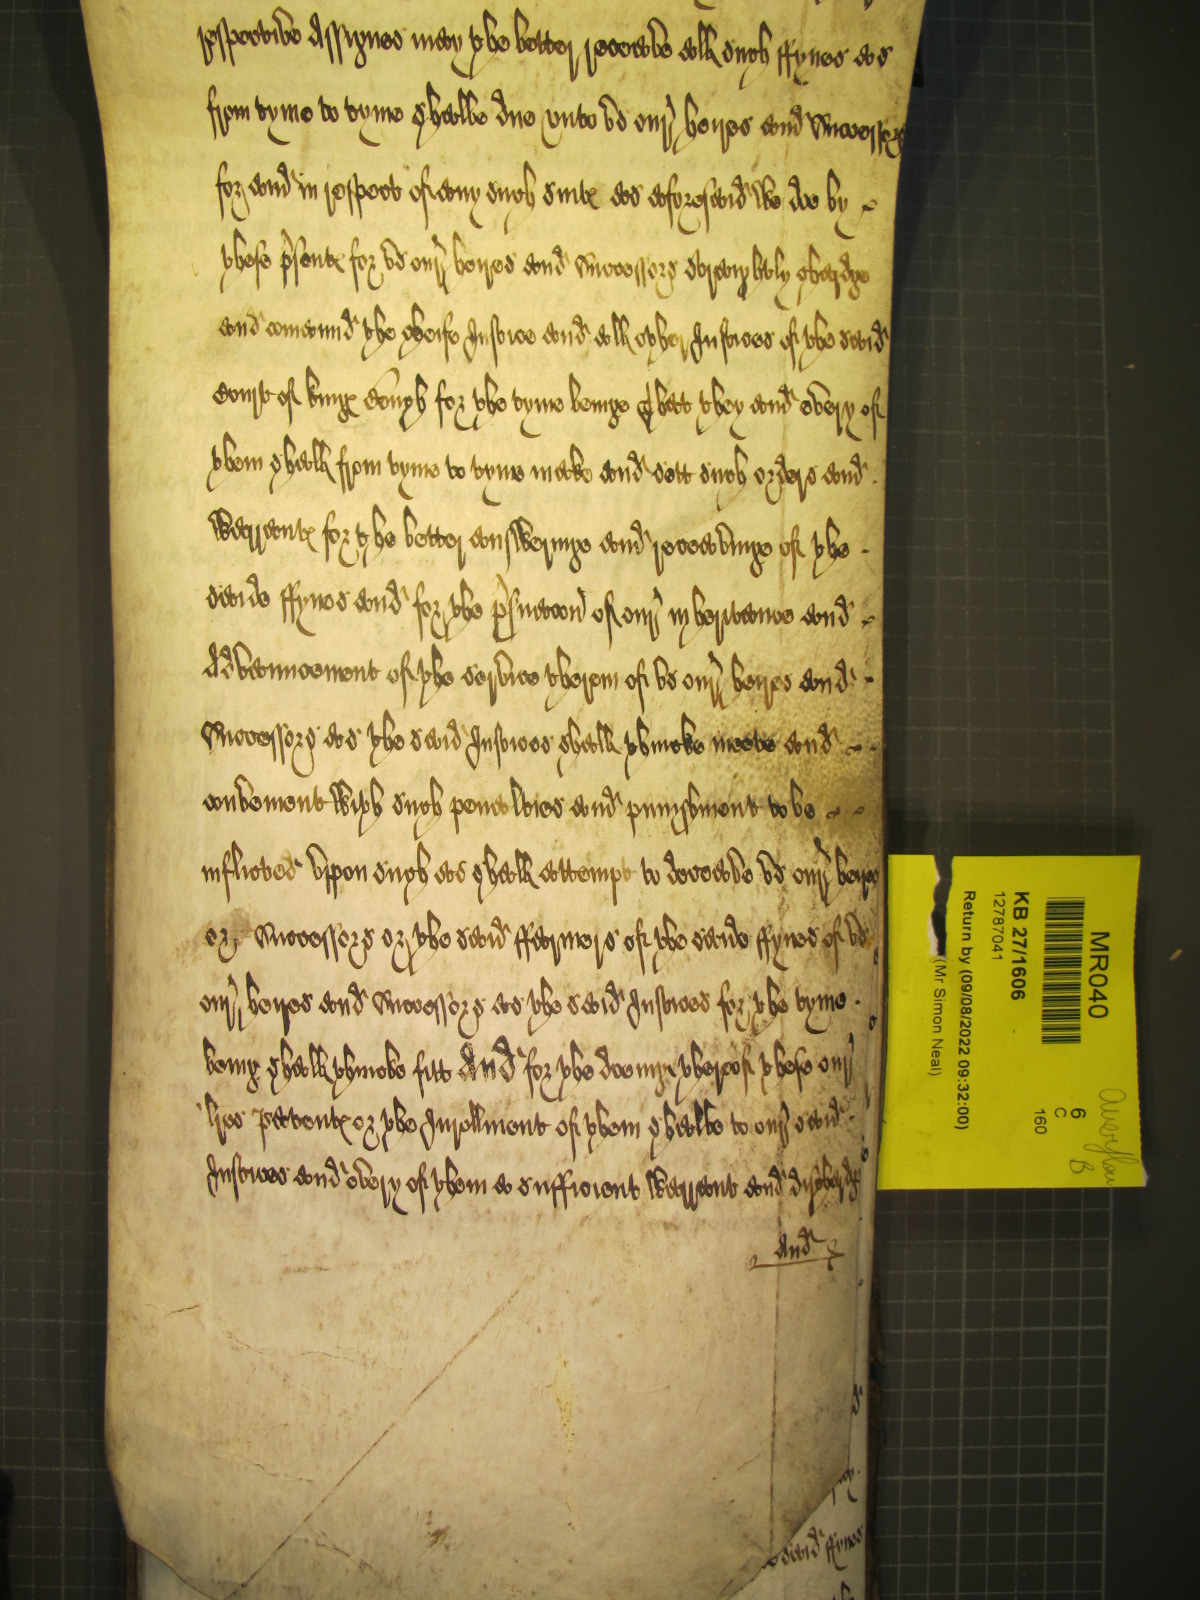 respective Assignes may the better receave all such ffynes as
from tyme to tyme shalbe due vnto vs our heires and Successors
for and in respect of any such suits as aforesaid We doe by
these p'sents for vs our heires and Successors straightly chardge
and com'aund the cheife Justice and all other Justices of the said
Court of kings Bench for the tyme beinge That they and every of
them shall from tyme to tyme make and sett such orders and
Warrants for the better answeringe and receavinge of the
saide ffynes and for the p'servac'on of our inheritance and
Advauncement of the service therein of vs our heires and
Successors as the said Justices shall thincke meete and
convenient With such penalties and punishment to be
inflicted vppon such as shall attempt to deceave vs our heires
or Successors or the said ffarmers of the saide ffynes of vs
our heires and Successors as the said Justices for the tyme
being shall thincke fitt And for the doeinge thereof these our
l'res Patents or the Inrollment of them shalbe to our said
Justices and every of them a sufficient Warrant and dischardge
and
said ffynes
MR040
KB 27/1606
12787041
Return by (09/08/2022 09:32:00)
(Mr Simon Neal)
6
C
160
B